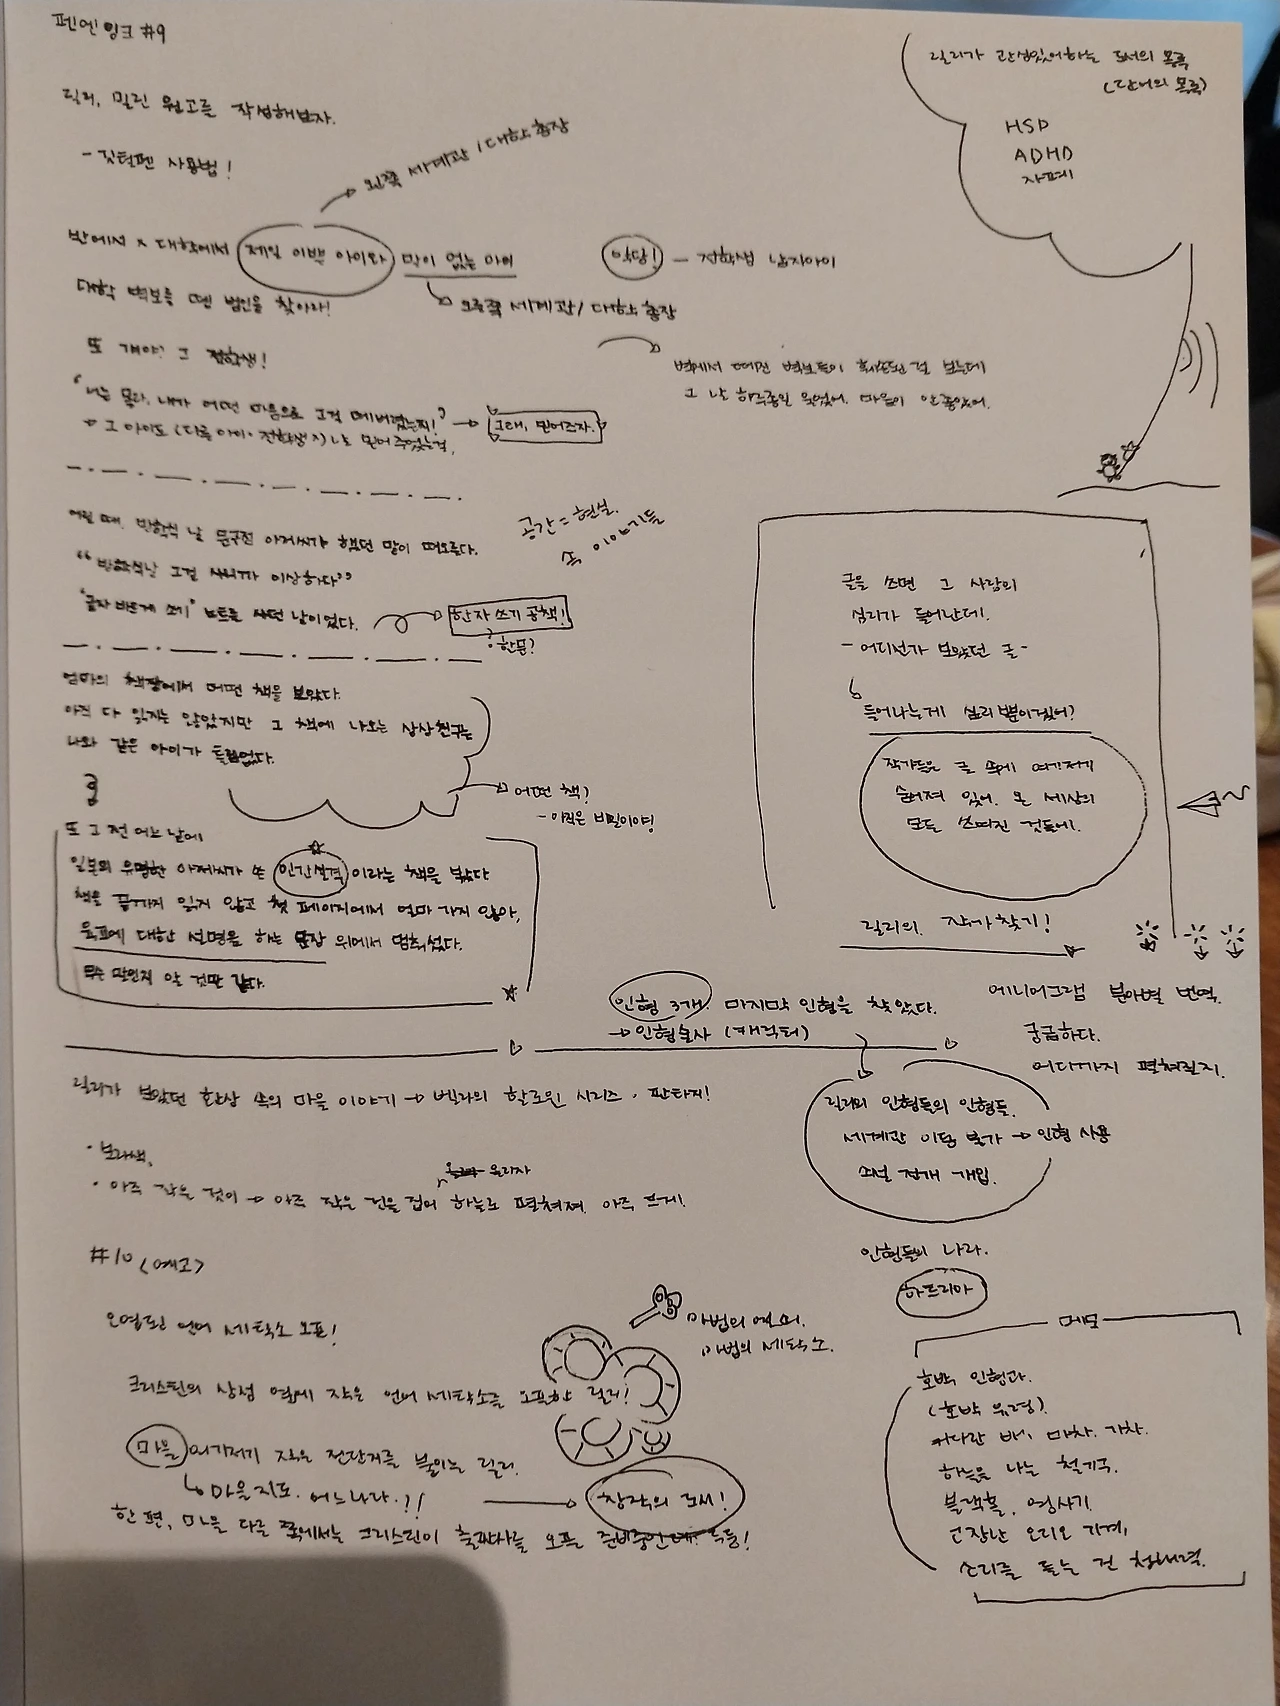 펜엔잉크 #9
릴리, 밀린 원고를 작성해보자.
- 깃털펜 사용법!
왼쪽 세계관 / 대학 총장
반에서 x 대학에서 제일 이쁜 아이와 말이 없는 아이
악당! - 전학생 남자아이
대학 벽보를 뗀 범인을 찾아라!
오른쪽 세계관 / 대학 총장
또 걔야? 그 전학생!
벽에서 떼어진 벽보들이 훼손된 걸 보는데
그 날 하루종일 울었어. 마음이 안 좋았어.
"너는 몰라, 내가 어떤 마음으로 그걸 떼버렸는지!" → 그래, 믿어주자.
그 아이도 (다른 아이·전학생 x) 나를 믿어주었는걸.
어릴 때, 방학식 날 문구점 아저씨가 했던 말이 떠오른다.
"방학식날 그걸 사러가 이상하다"
'글자 바르게 쓰기' 노트를 사던 날이었다.
한자 쓰기 공책!
한문?
공간 = 현실.
속 이야기들
엄마의 책장에서 어떤 책을 보았다.
아직 다 읽지는 않았지만 그 책에 나오는 상상친구는
나와 같은 아이가 틀림없다.
어떤 책?
- 아직은 비밀이야!
또 그 전 어느 날에
일본의 유명한 아저씨가 쓴 인간실격 이라는 책을 봤다
책을 끝까지 읽지 않고 첫 페이지에서 얼마 가지 않아,
목표에 대한 설명을 하는 문장 위에서 멈춰섰다.
무슨 말인지 알 것만 같다.
릴리가 관심있어하는 도서의 목록
(단어의 목록)
HSP
ADHD
자폐
글을 쓰면 그 사람의
심리가 드러난데!
- 어디선가 보았던 글 -
드러나는게 심리 뿐이겠어?
작가들은 글 속에 여기저기
숨어져 있어. 온 세상의
모든 쓰여진 것들에.
릴리의 작가찾기!
인형 3개. 마지막 인형을 찾았다.
→ 인형술사 (캐릭터)
에니어그램 분야별 번역.
궁금하다.
어디까지 펼쳐질지.
릴리의 인형들의 인형들.
세계관 이동 불가 → 인형 사용
소설 전개 개입.
인형들의 나라.
하트리아
릴리가 보았던 환상 속의 마을 이야기 → 벨라의 할로윈 시리즈 · 판타지!
· 보라색.
· 아주 작은 것이 → 아주 작은 것을 접어 하늘로 펼쳐져. 아주 크게.
올리자
#10 <예고>
오염된 언어 세탁소 오픈!
마법의 열쇠.
마법의 세탁소.
크리스틴의 상점 옆에 작은 언어 세탁소를 오픈한 릴리!
마을 여기저기 작은 전단지를 붙이는 릴리.
마을지도. 어느나라.?!
창작의 도시!
한 편, 마을 다른 쪽에서는 크리스틴이 출판사를 오픈 준비중인데. 두둥!
메모
호박 인형과.
(호박 유령).
커다란 배, 마차. 기차.
하늘을 나는 청기구.
블랙홀. 영사기.
고장난 오디오 기계,
소리를 듣는 건 청해력.